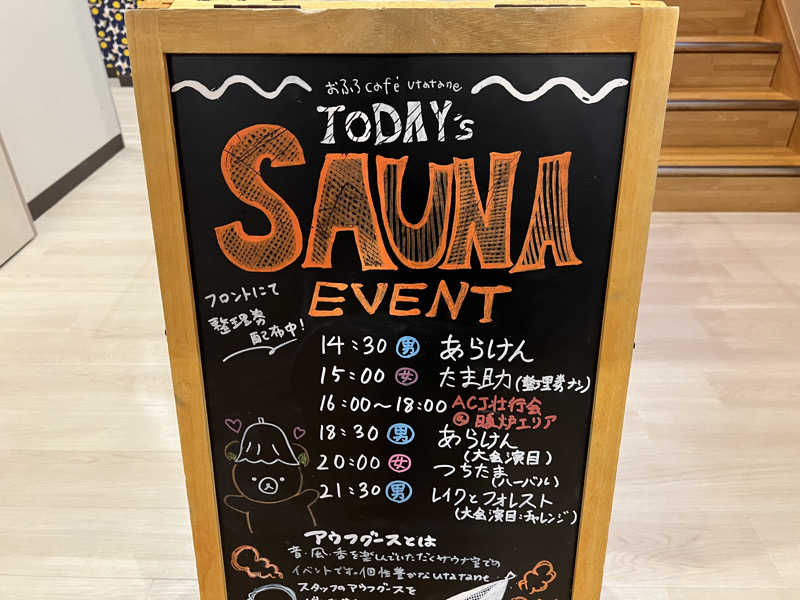 おふろcafé utatane
TODAY's
SAUNA
EVENT
フロントにて
整理券
配布中!
14:30 男 あらけん
15:00 女 たま助(整理券ナシ)
16:00~18:00 ACJ壮行会
@暖炉エリア
18:30 男 あらけん
(大会演目)
20:00 女 つちたま
(ハーバル)
21:30 男 レイクとフォレスト
(大会演目:チャレンジ)
アウフグースとは
音・風・香を楽しんでいただくサウナ室での
イベントです。個性豊かなutatane
スタッフのアウフグースを